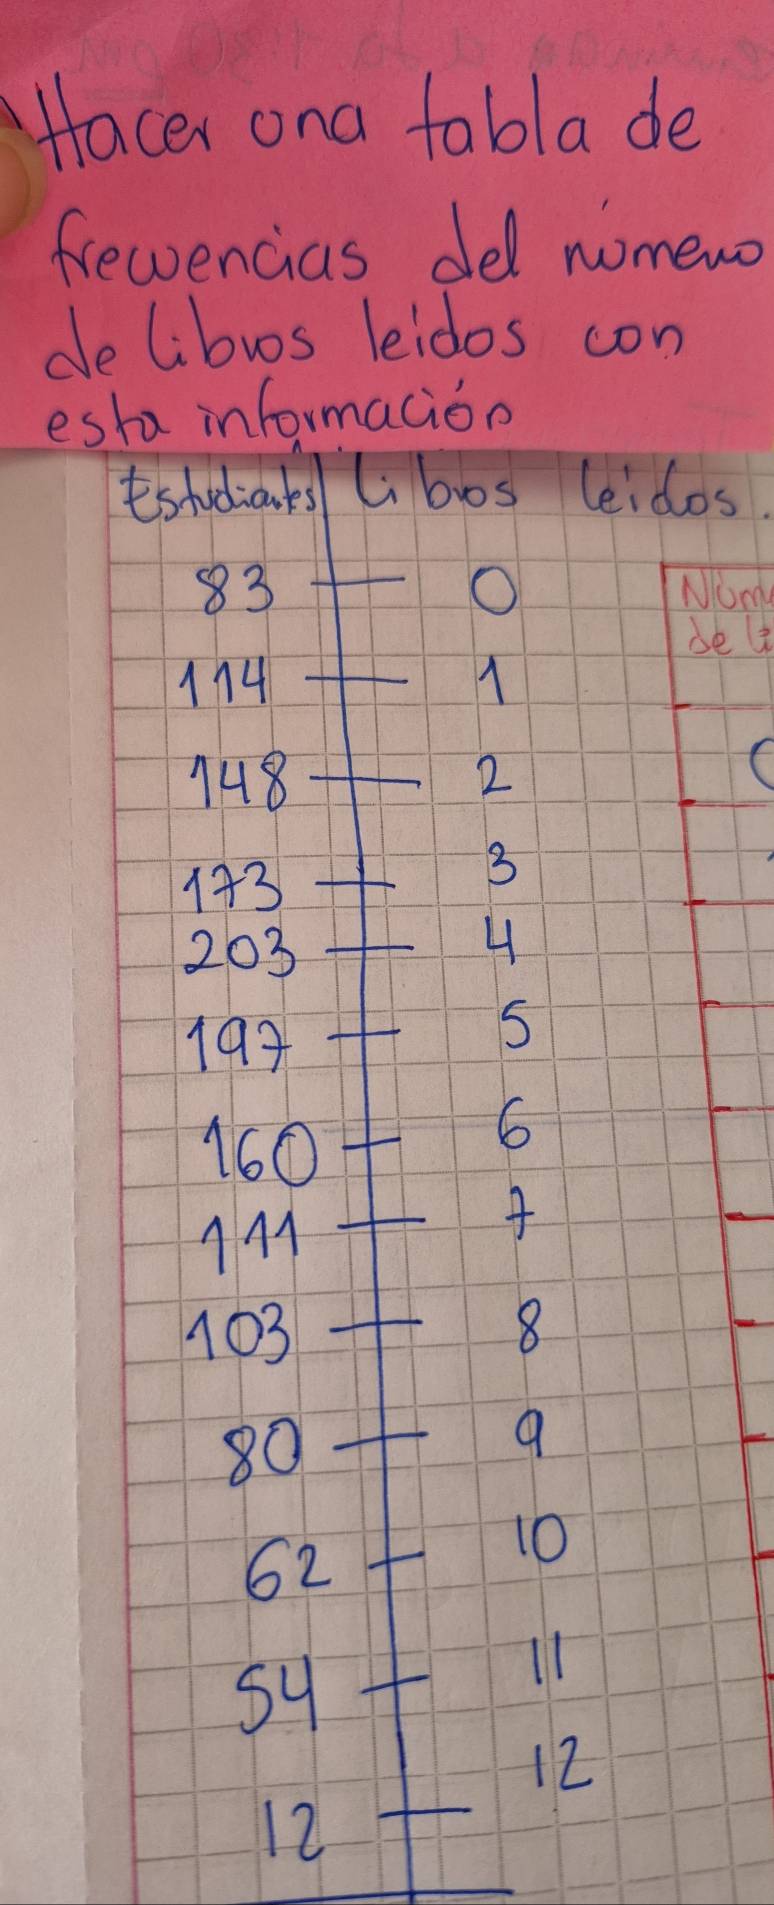 Hacer una tabla de
frecuencias del número
de libros leidos con
esta información
Estudiantes libros leidos.
83 0
114 1
148 2
173 3
203 4
197 5
160 6
111 7
103 8
80 9
62 10
54 11
12 12
Núm
de li